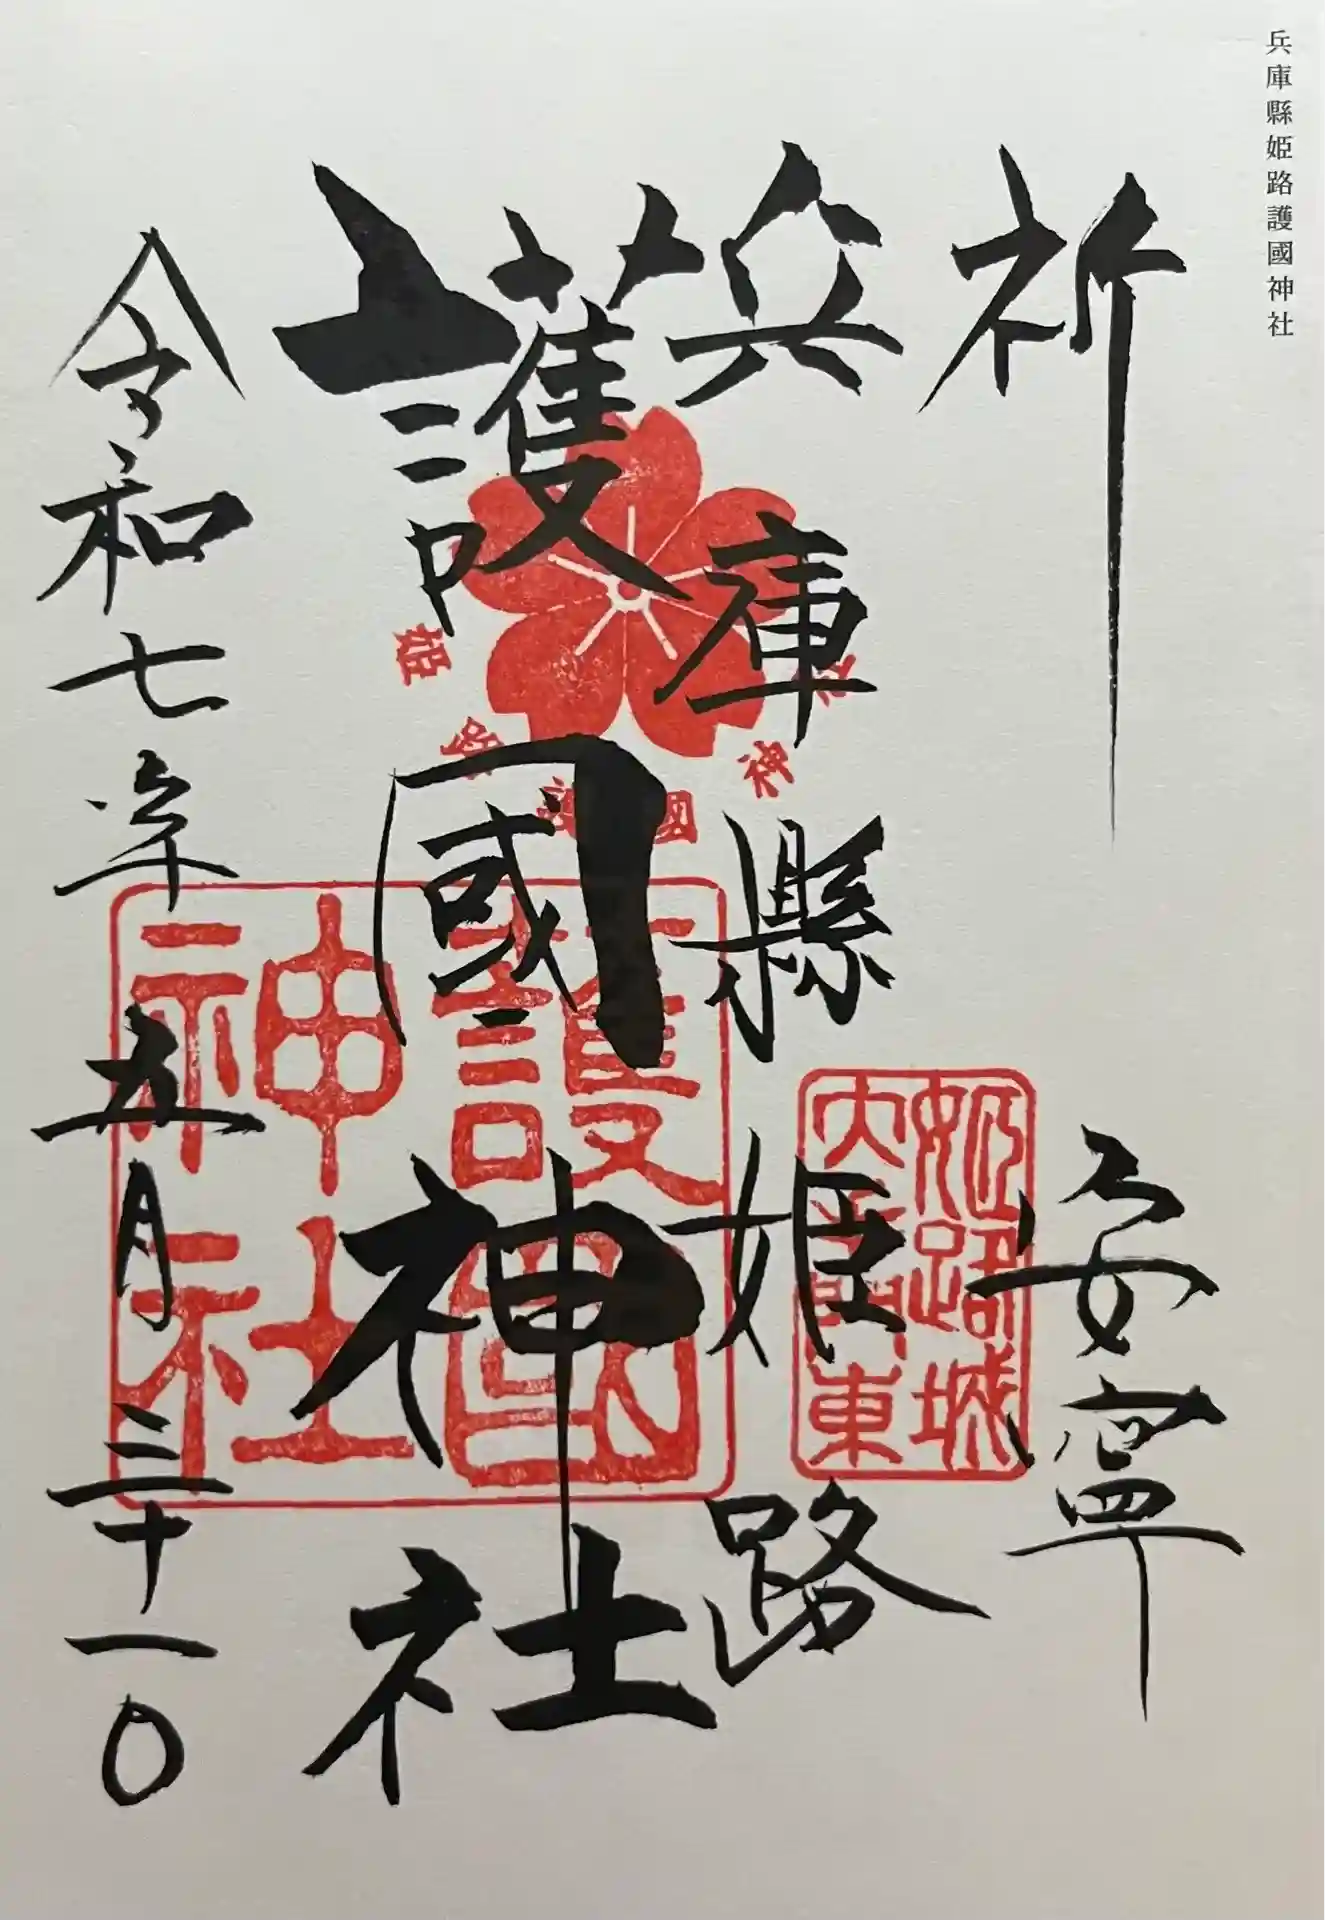 兵庫縣姫路護國神社
祈 安寧
兵庫縣姫路
護國神社
令和七年五月三十一日
姫路護國神社
護國神社
姫路城
大手門東